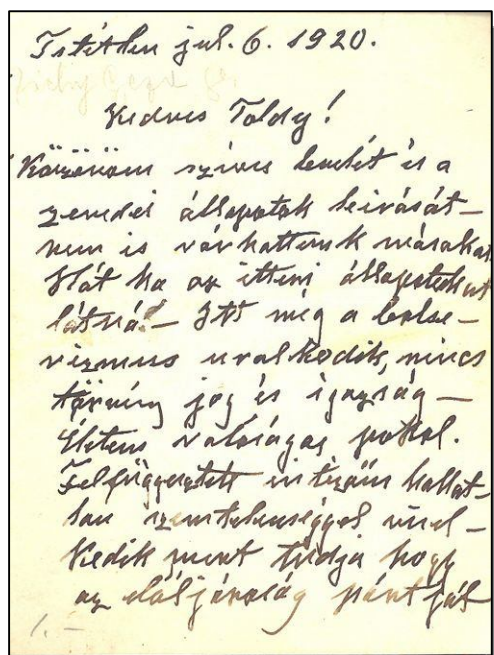 Tetétlen jul. 6. 1920.
Zichy Géza
Kedves Toldy!
Köszönöm szíves levelét és a
zenedei állapotok leirását –
nem is várhattunk másokat
Hát ha az itteni állapotokat
látná! – Itt még a bolse-
vizmus uralkodik, nincs
törvény jog és igazság –
Életem valóságos pokol.
Felfüggesztett intézőm hallat-
lan szemtelenséggel visel-
kedik mert tudja hogy
az elöljáróság pártját
1. –